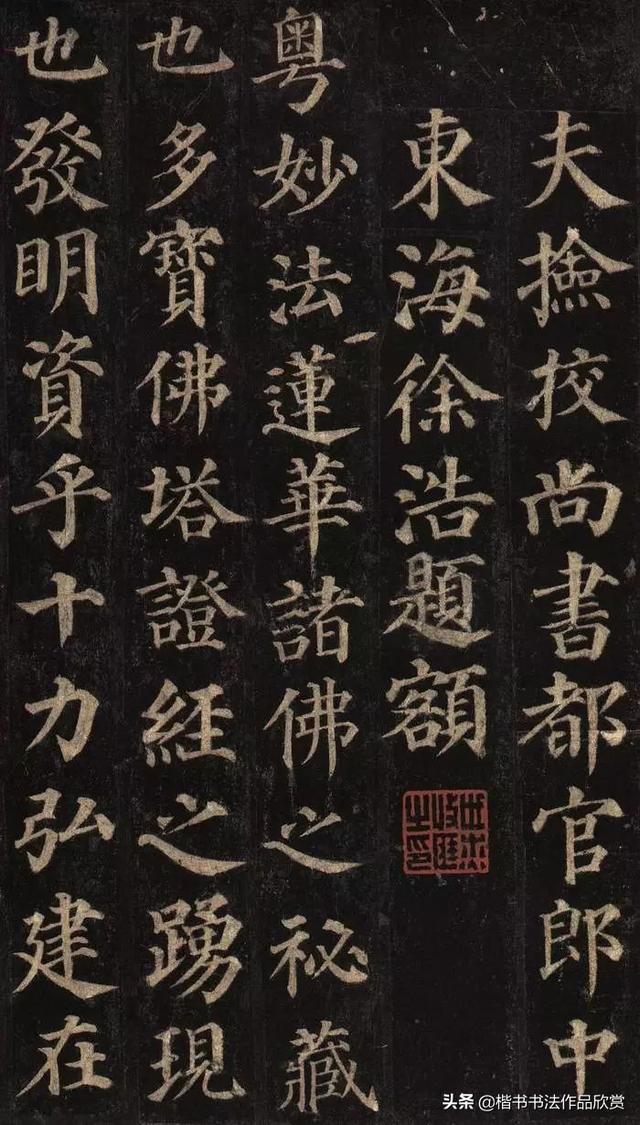 夫撿挍尚書都官郎中
東海徐浩題額
粵妙法蓮華諸佛之祕藏
也多寶佛塔證經之踴現
也發明資乎十力弘建在
头条 @楷书书法作品欣赏